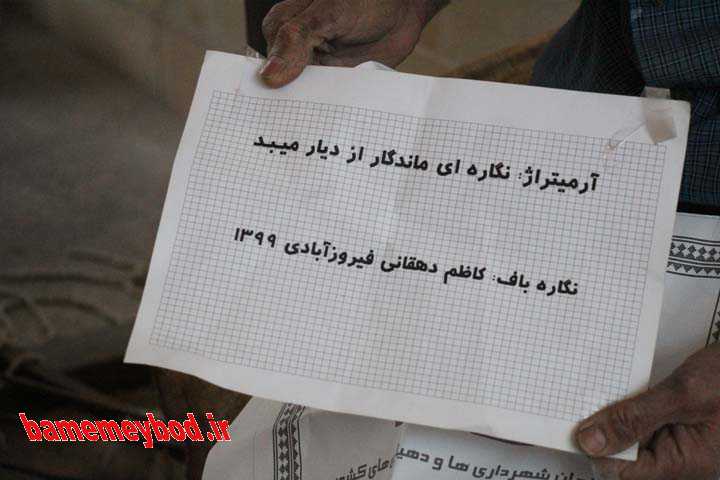 آرمیتراژ: نگاره ای ماندگار از دیار میبد
نگاره باف: کاظم دهقانی فیروزآبادی ۱۳۹۹
شهرداری ها و دهی
های کشور
bamemeybod.ir